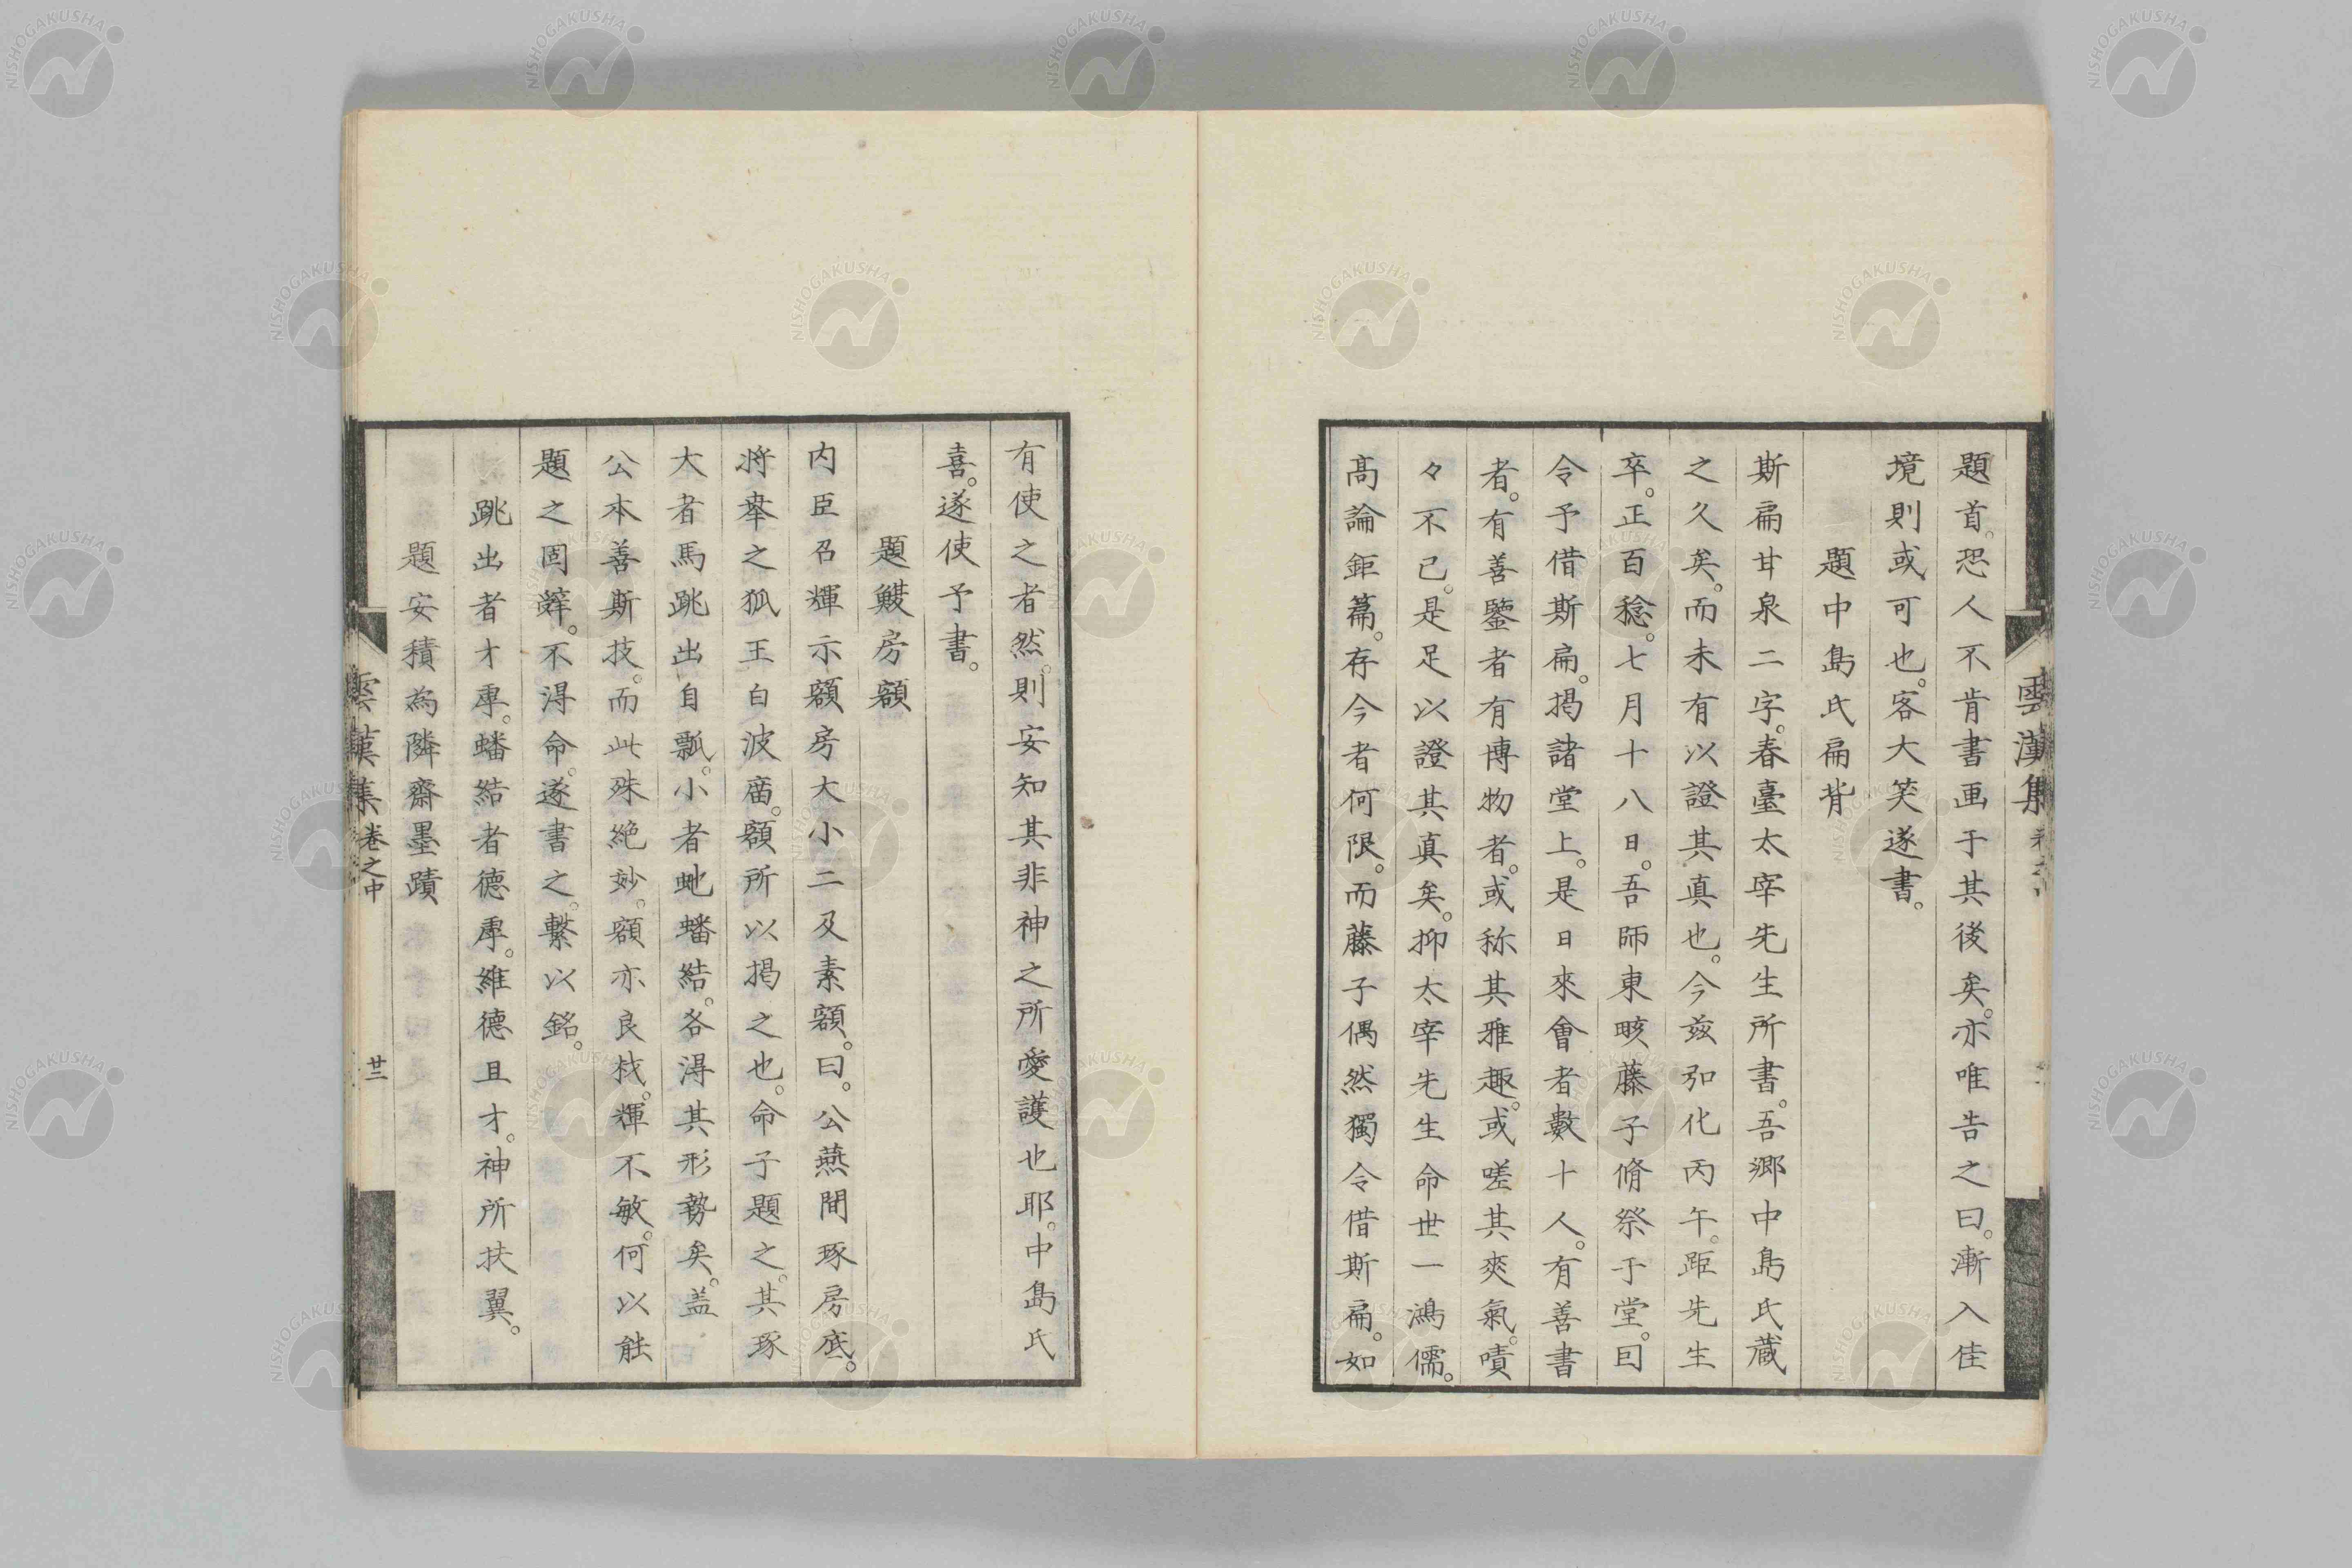 題首。恐人不肯書画于其後矣。亦唯告之曰。漸入佳
境則或可也。客大笑遂書。
題中島氏扁背
斯扁甘泉二字。春臺太宰先生所書。吾郷中島氏蔵
之久矣。而未有以證其真也。今玆弘化丙午。距先生
卒。正百稔。七月十八日。吾師東畡藤子脩祭于堂。曰
令予借斯扁。掲諸堂上。是日來會者數十人。有善書
者。有善鑒者有博物者。或称其雅趣。或嗟其爽氣。嘖
々不已。是足以證其真矣。抑太宰先生命世一鴻儒。
髙論鉅篇。存今者何限。而藤子偶然獨令借斯扁。如
有使之者然。則安知其非神之所愛護也耶。中島氏
喜。遂使予書。
題鞍房額
内臣召輝示額房大小二及素額。曰。公燕間琢房底。
将舉之狐王白波廟。額所以掲之也。命子題之。其琢
大者馬跳出自瓢。小者虵蟠結。各淂其形勢矣。盖
公本善斯技。而此殊絶妙。額亦良材。輝不敏。何以能
題之固辤。不淂命。遂書之。繫以銘。
跳出者才虖。蟠結者德虖。維德且才。神所扶翼。
題安積為隣齋墨蹟
雲漢集
雲漢集 卷之中
廿三